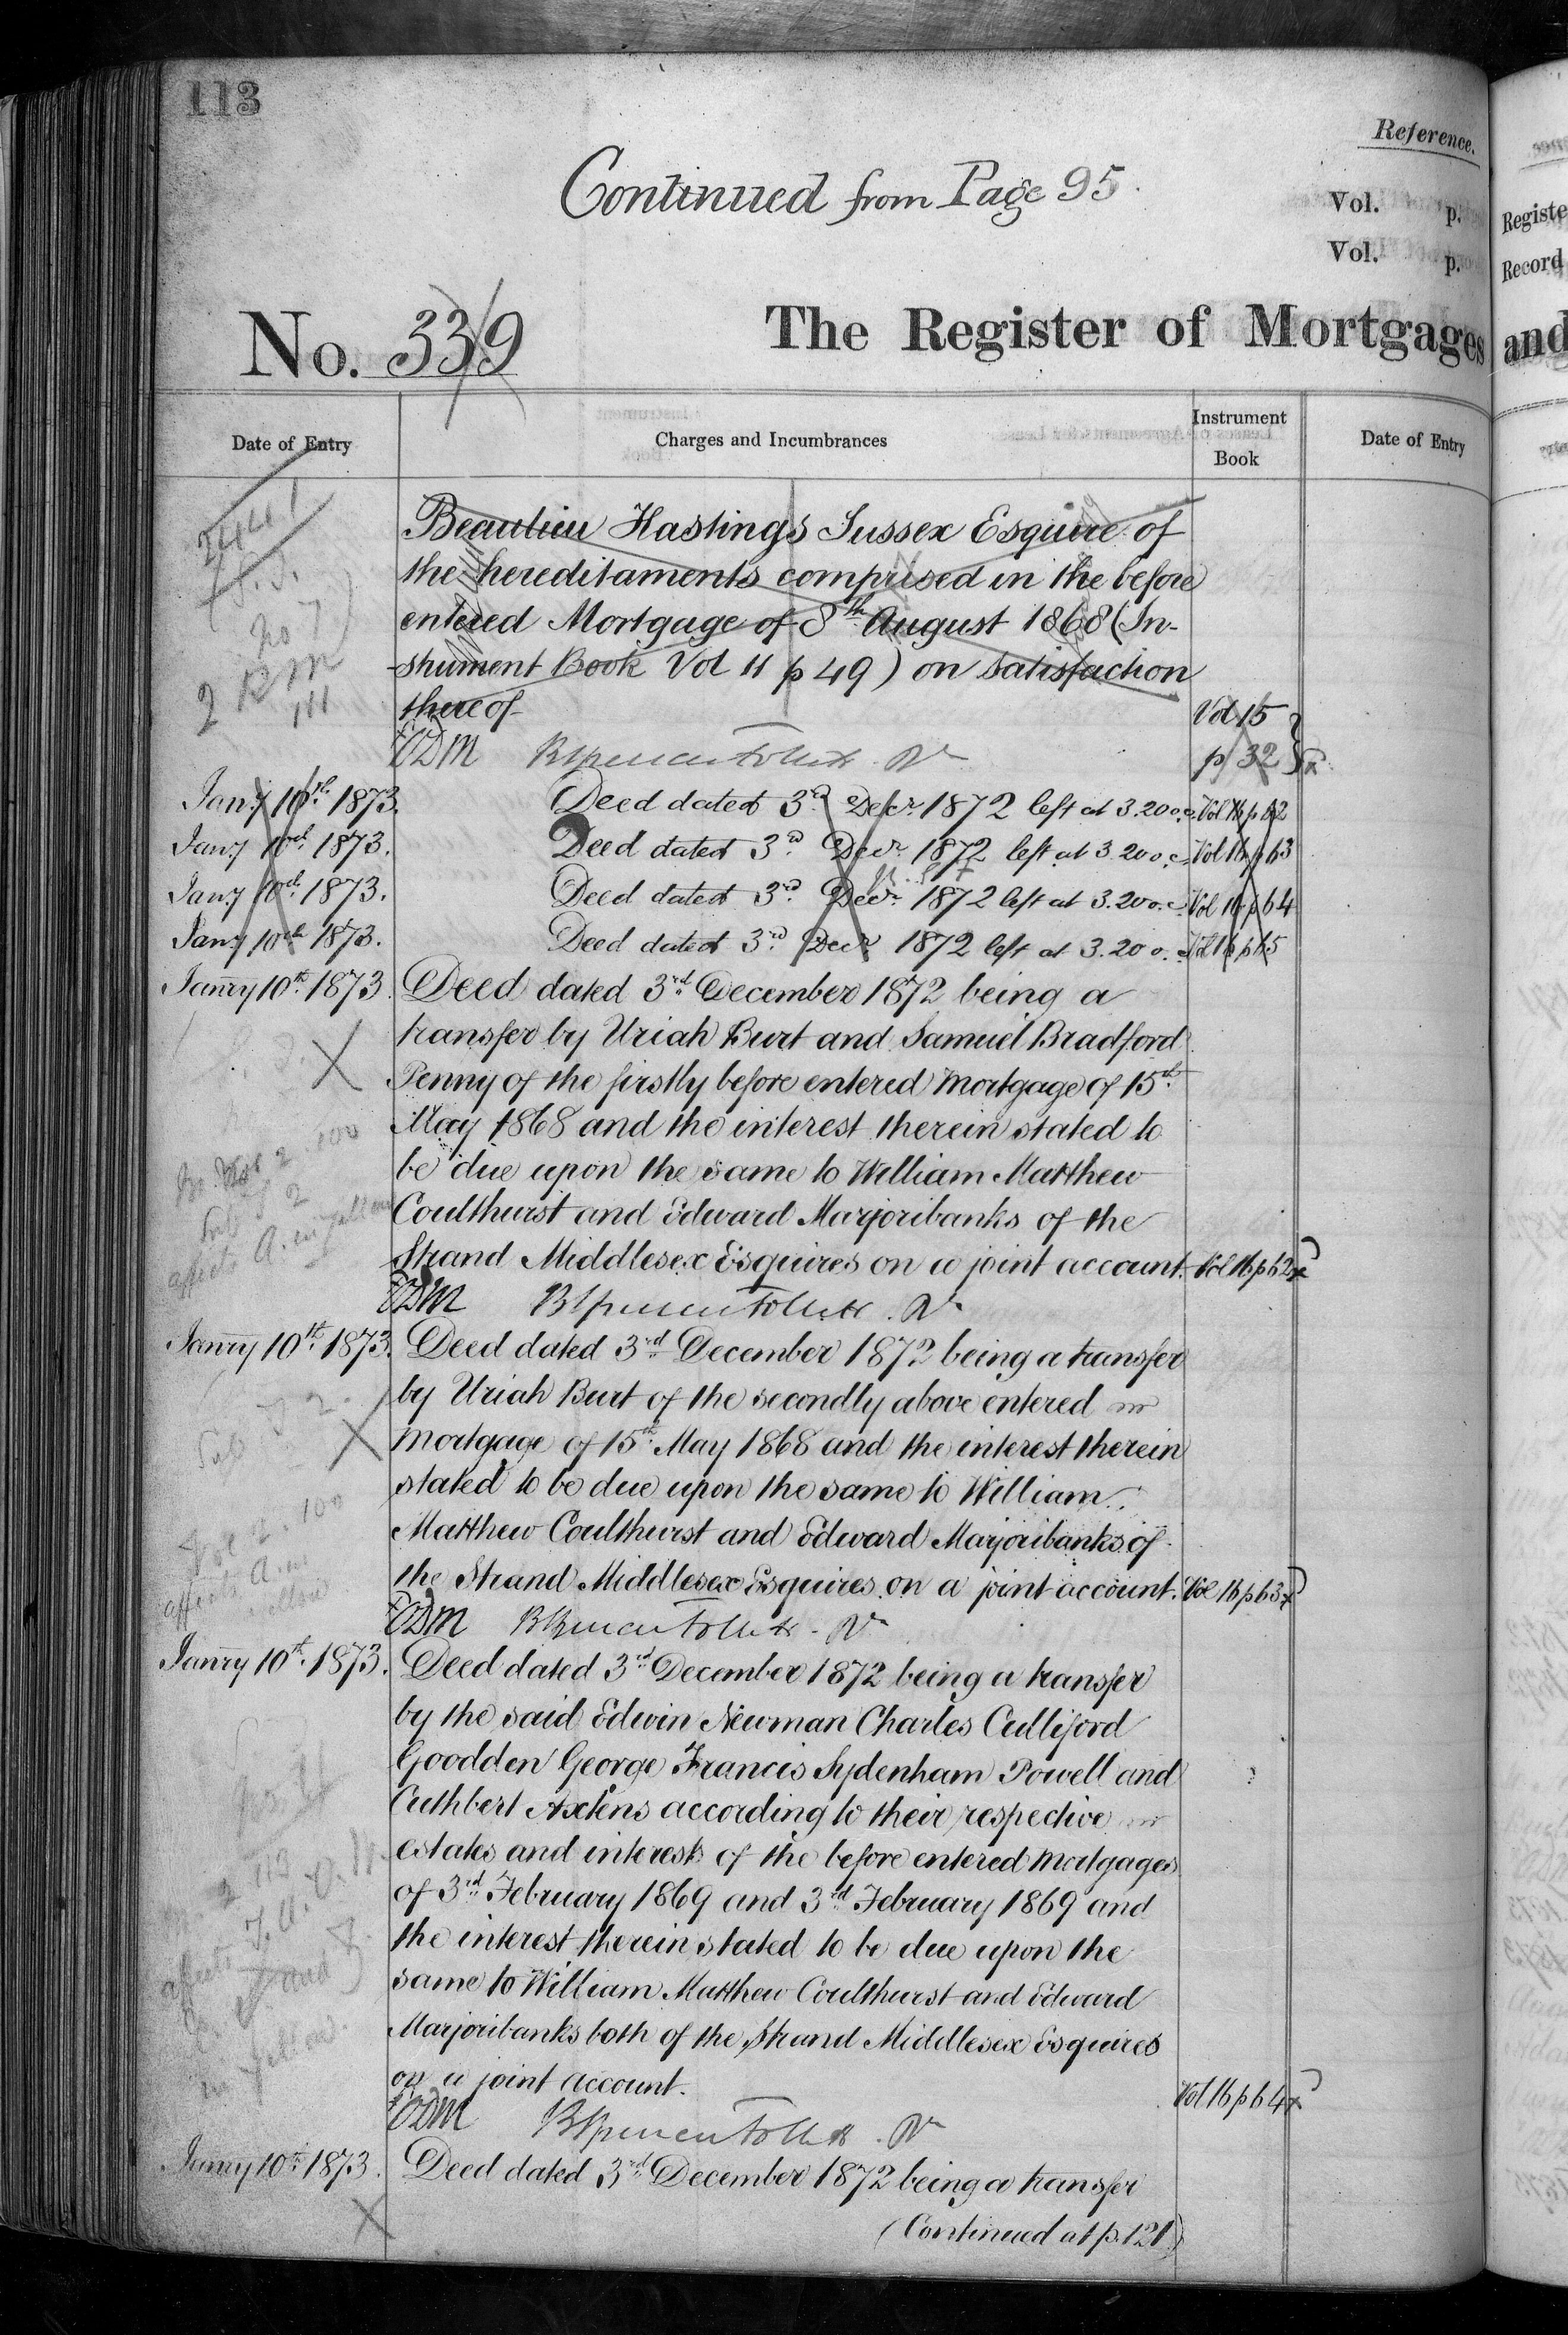 113
Reference.
Continued from Page 95
Vol. p.
Vol. p.
Registe
Record
No. 339
The Register of Mortgages
and
Date of Entry
Charges and Incumbrances
Instrument
Book
Date of Entry
2441
Beaulieu Hastings Sussex Esquire of
the hereditaments comprised in the before
entered Mortgage of 8th August 1868 (In-
strument Book Vol 11 p 49) on satisfaction
thereof
Vol 15
p 32
Jany 10th 1873. Deed dated 3rd Decr 1872 left at 3.20 o.c. Vol 16 p 62
Jany 10th 1873. Deed dated 3rd Decr 1872 left at 3.20 o.c. Vol 16 p 63
Jany 10th 1873. Deed dated 3rd Decr 1872 left at 3.20 o.c. Vol 16 p 64
Jany 10th 1873. Deed dated 3rd Decr 1872 left at 3.20 o.c. Vol 16 p 65
Janry 10th 1873. Deed dated 3rd December 1872 being a
transfer by Uriah Burt and Samuel Bradford
Penny of the firstly before entered Mortgage of 15th
May 1868 and the interest therein stated to
be due upon the same to William Matthew
Coulthurst and Edward Marjoribanks of the
Strand Middlesex Esquires on a joint account. Vol 16 p 62
Janry 10th 1873. Deed dated 3rd December 1872 being a transfer
by Uriah Burt of the secondly above entered
Mortgage of 15th May 1868 and the interest therein
stated to be due upon the same to William
Matthew Coulthurst and Edward Marjoribanks of
the Strand Middlesex Esquires on a joint account. Vol 16 p 63
Janry 10th 1873. Deed dated 3rd December 1872 being a transfer
by the said Edwin Newman Charles Culliford
Goodden George Francis Sydenham Powell and
Cuthbert Axtens according to their respective
estates and interests of the before entered Mortgages
of 3rd February 1869 and 3rd February 1869 and
the interest therein stated to be due upon the
same to William Matthew Coulthurst and Edward
Marjoribanks both of the Strand Middlesex Esquires
on a joint account.
Vol 16 p 64
Janry 10th 1873. Deed dated 3rd December 1872 being a transfer
(Continued at p. 121)